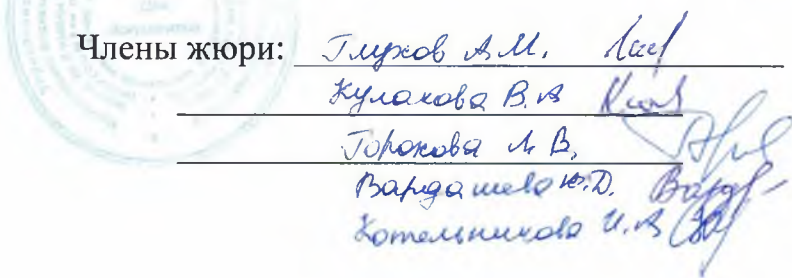 Члены жюри: Глухов А.М.
Кулакова В.А
Горохова Л.В.
Вардашева Ю.Д.
Котельникова И.А